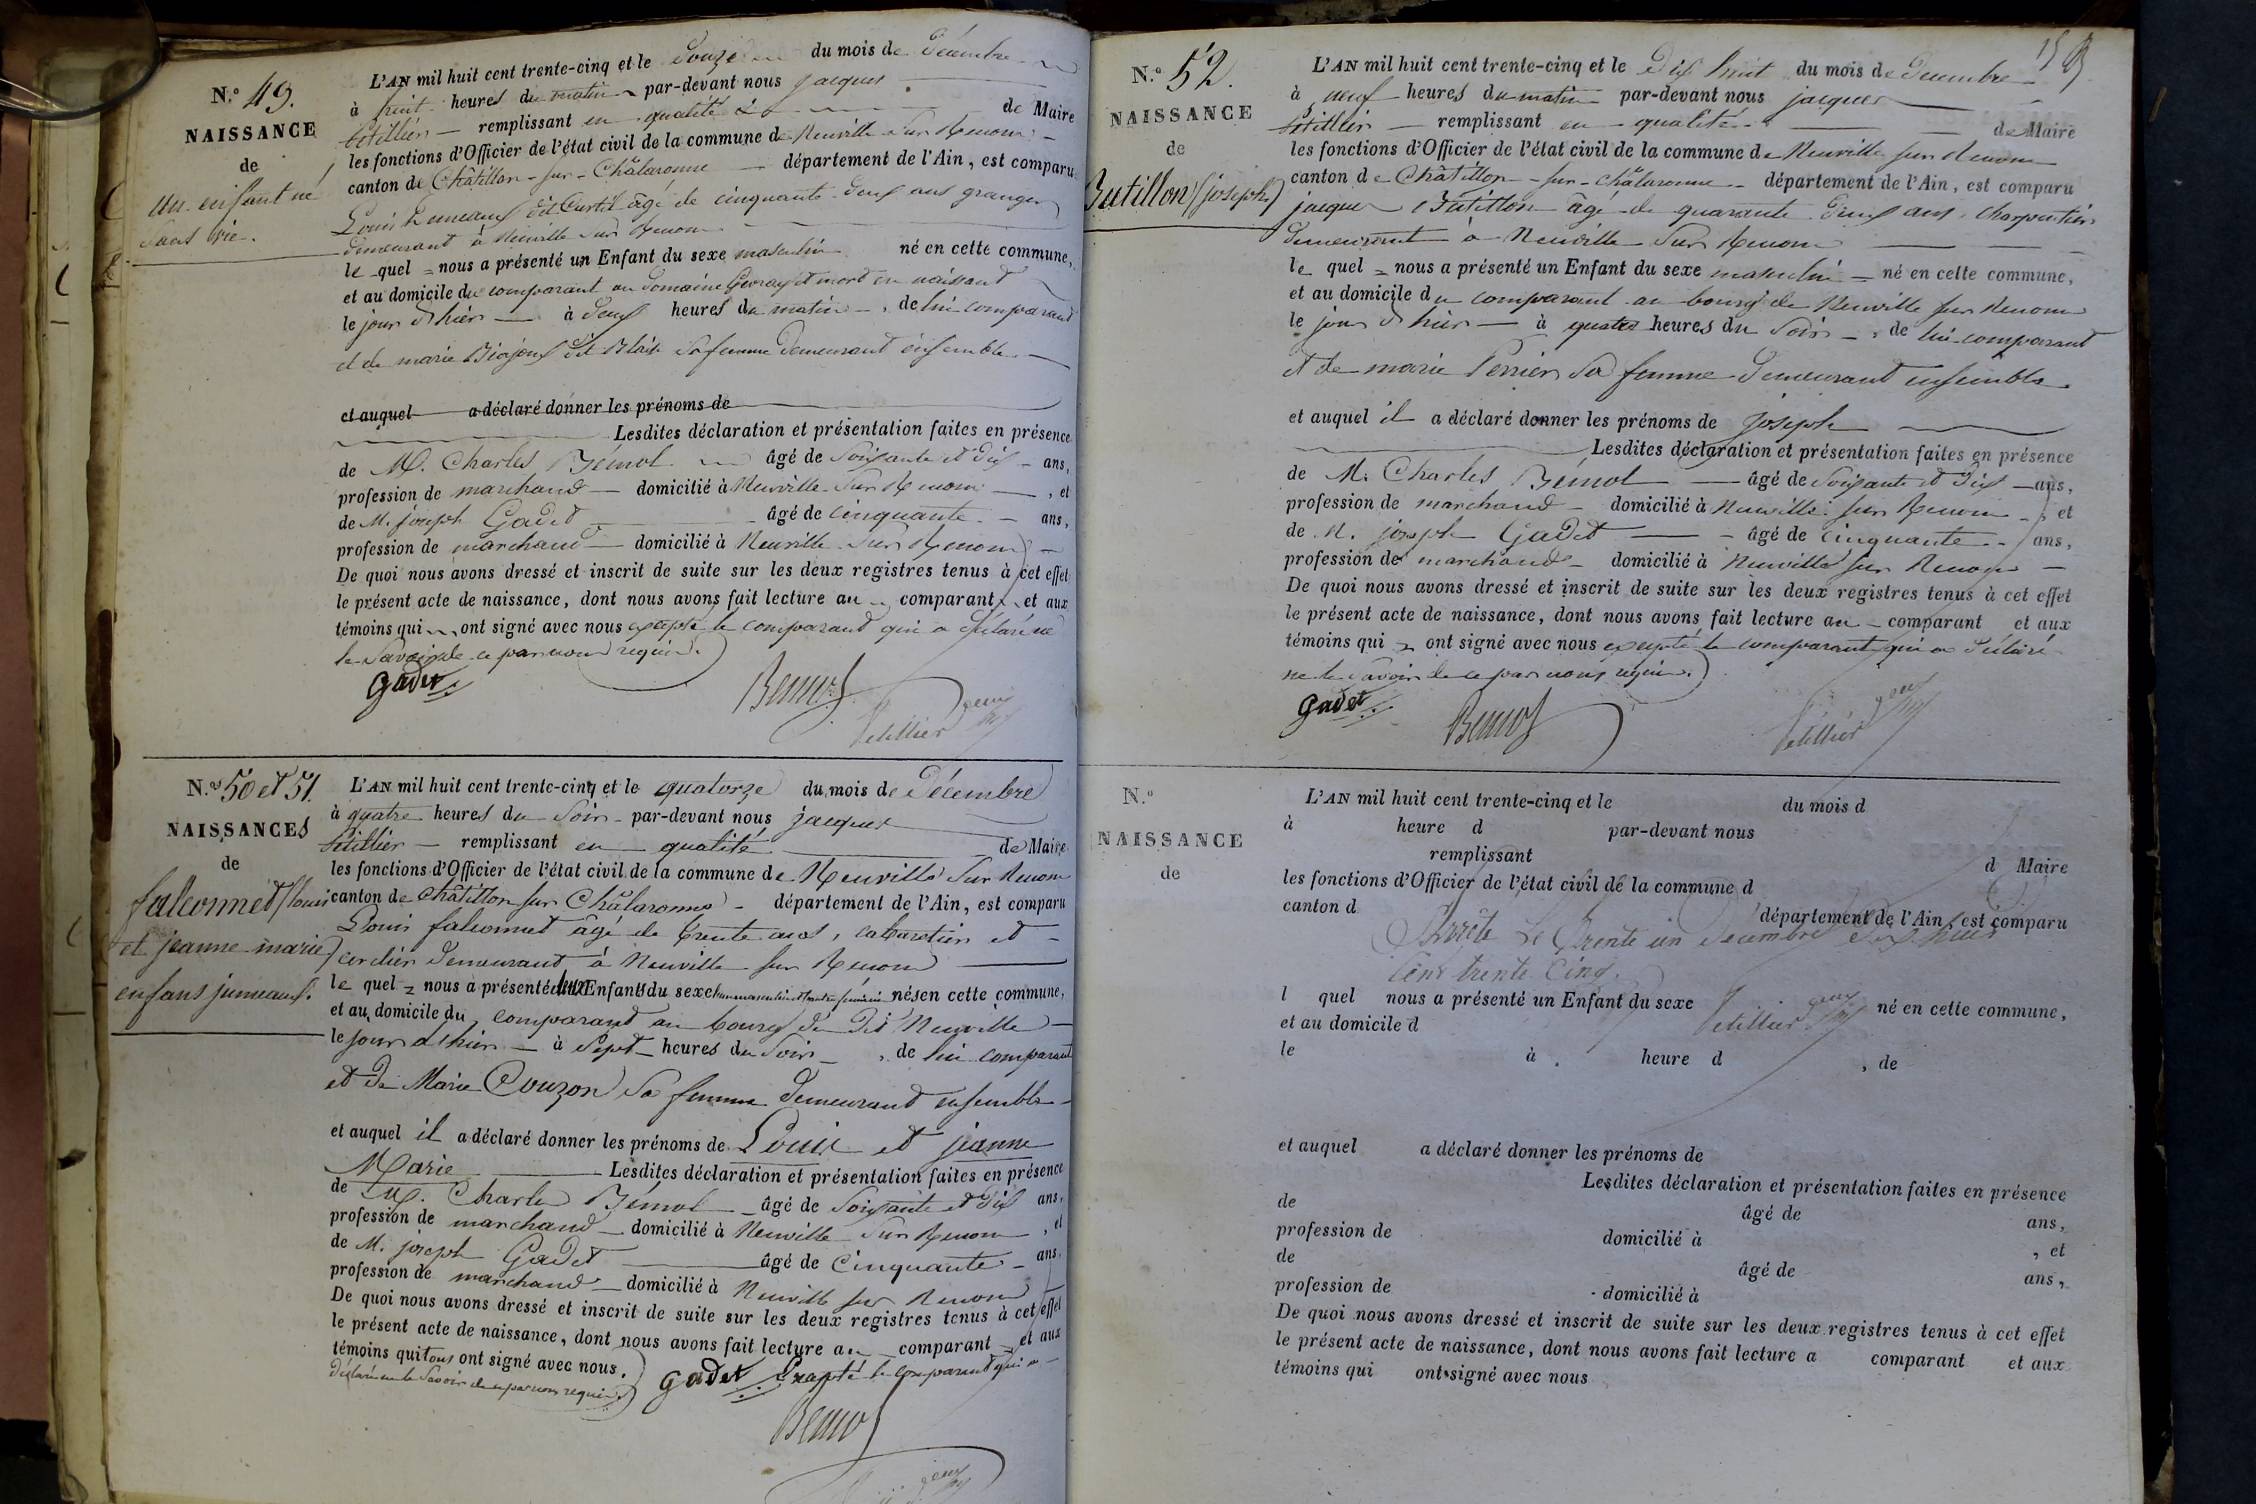 N.º 49.
NAISSANCE
de
Un enfant né
sans vie.
L'AN mil huit cent trente-cinq et le Douze du mois de Décembre
à huit heures du matin par-devant nous jacques
remplissant en qualité de Maire
les fonctions d'Officier de l'état civil de la commune de Neuville sur Renom
canton de Châtillon-sur-Châlaronne département de l'Ain, est comparu
Louis dit Curtil âgé de cinquante deux ans granger
demeurant à Neuville sur Renom
le quel nous a présenté un Enfant du sexe masculin né en cette commune,
et au domicile du comparant au domaine et mort en naissant
le jour d'hier à deux heures du matin, de lui comparant
et de marie dit Blais sa femme demeurant ensemble
et auquel a déclaré donner les prénoms de
Lesdites déclaration et présentation faites en présence
de M. Charles Bémol âgé de Soixante et dix ans,
profession de marchand domicilié à Neuville sur Renom, et
de M. joseph Gadet âgé de cinquante ans,
profession de marchand domicilié à Neuville sur Renom
De quoi nous avons dressé et inscrit de suite sur les deux registres tenus à cet effet
le présent acte de naissance, dont nous avons fait lecture au comparant et aux
témoins qui ont signé avec nous excepté le comparant qui a déclaré ne
le Savoir de ce par nous requis.
Gadet Bemol
N.os 50 et 51.
NAISSANCES
de
falconnet (Louis
et jeanne-marie)
enfans jumeaux.
L'AN mil huit cent trente-cinq et le quatorze du mois de Décembre
à quatre heures du Soir par-devant nous jacques
remplissant en qualité de Maire
les fonctions d'Officier de l'état civil de la commune de Neuville sur Renom
canton de Châtillon sur Châlaronne département de l'Ain, est comparu
Louis falconnet âgé de trente ans, cabaretier et
cordier demeurant à Neuville sur Renom
le quel nous a présenté deux Enfants du sexe l'un masculin et l'autre féminin nés en cette commune,
et au domicile du comparant au bourg du dit Neuville
le jour d'hier à Sept heures du Soir, de lui comparant
et de Marie Couzon sa femme demeurant ensemble
et auquel il a déclaré donner les prénoms de Louis et jeanne
Marie Lesdites déclaration et présentation faites en présence
de M. Charles Bémol âgé de Soixante et dix ans,
profession de marchand domicilié à Neuville sur Renom, et
de M. joseph Gadet âgé de cinquante ans,
profession de marchand domicilié à Neuville sur Renom
De quoi nous avons dressé et inscrit de suite sur les deux registres tenus à cet effet
le présent acte de naissance, dont nous avons fait lecture au comparant et aux
témoins qui tous ont signé avec nous. Excepté le comparant qui a
déclaré ne le Savoir de ce par nous requis.
Gadet
Bemol
N.º 52.
NAISSANCE
de
Butillon (joseph)
L'AN mil huit cent trente-cinq et le Dix huit du mois de Decembre
à neuf heures du matin par-devant nous jacques
remplissant en qualité de Maire
les fonctions d'Officier de l'état civil de la commune de Neuville sur Renom
canton de Châtillon-sur-châlaronne département de l'Ain, est comparu
jacques Butillon âgé de quarante deux ans, charpentier
demeurant à Neuville sur Renom
le quel nous a présenté un Enfant du sexe masculin né en cette commune,
et au domicile du comparant au bourg de Neuville sur Renom
le jour d'hier à quatre heures du Soir, de lui comparant
et de marie Perrier Sa femme demeurant ensemble.
et auquel il a déclaré donner les prénoms de joseph
Lesdites déclaration et présentation faites en présence
de M. Charles Bémol âgé de Soixante et dix ans,
profession de marchand domicilié à Neuville sur Renom, et
de M. joseph Gadet âgé de cinquante ans,
profession de marchand domicilié à Neuville sur Renom
De quoi nous avons dressé et inscrit de suite sur les deux registres tenus à cet effet
le présent acte de naissance, dont nous avons fait lecture au comparant et aux
témoins qui ont signé avec nous excepté le comparant qui a déclaré
ne le Savoir de ce par nous requis.
Gadet Bemol
N.º
NAISSANCE
de
L'AN mil huit cent trente-cinq et le du mois d
à heure d par-devant nous
remplissant d Maire
les fonctions d'Officier de l'état civil de la commune d
canton d département de l'Ain, est comparu
Arrêté Le Trente un Decembre dix huit
Cent trente Cinq.
l quel nous a présenté un Enfant du sexe né en cette commune,
et au domicile d
le à heure d, de
et auquel a déclaré donner les prénoms de
Lesdites déclaration et présentation faites en présence
de âgé de ans,
profession de domicilié à, et
de âgé de ans,
profession de domicilié à
De quoi nous avons dressé et inscrit de suite sur les deux registres tenus à cet effet
le présent acte de naissance, dont nous avons fait lecture a comparant et aux
témoins qui ont signé avec nous